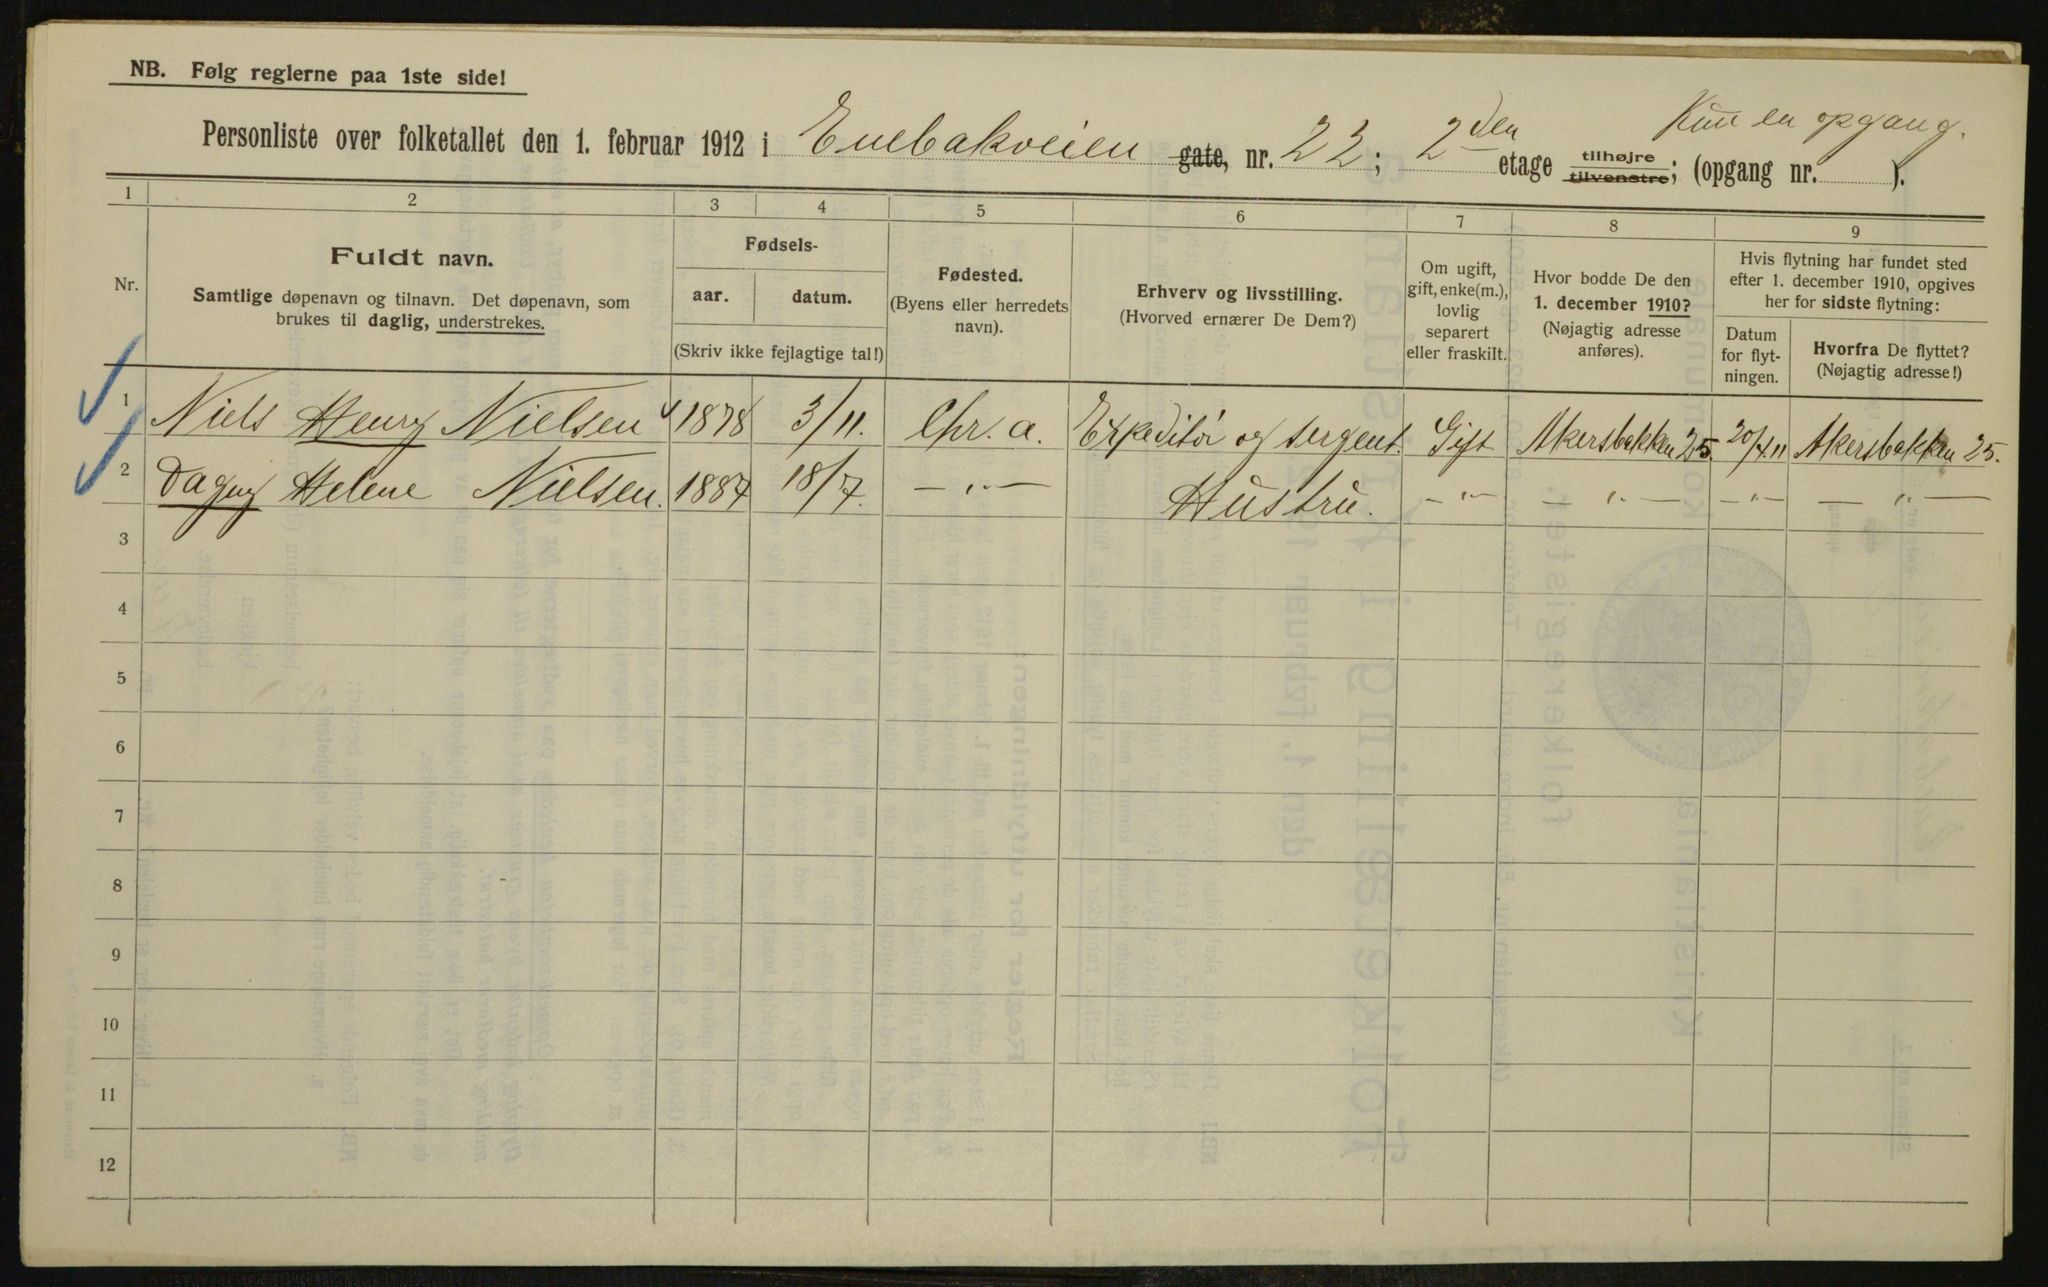 NB. Følg reglerne paa 1ste side!
Kun en opgang.
Personliste over folketallet den 1. februar 1912 i Enebakveien gate, nr. 22; 2den etage tilhøjre tilvenstre; (opgang nr. ).
1 2 3 4 5 6 7 8 9
Nr.
Fuldt navn.
Samtlige døpenavn og tilnavn. Det døpenavn, som
brukes til daglig, understrekes.
Fødsels-
aar. datum.
(Skriv ikke fejlagtige tal!)
Fødested.
(Byens eller herredets
navn).
Erhverv og livsstilling.
(Hvorved ernærer De Dem?)
Om ugift,
gift, enke(m.),
lovlig
separert
eller fraskilt.
Hvor bodde De den
1. december 1910?
(Nøjagtig adresse
anføres).
Hvis flytning har fundet sted
efter 1. december 1910, opgives
her for sidste flytning:
Datum
for flyt-
ningen.
Hvorfra De flyttet?
(Nøjagtig adresse!)
1 Niels Henry Nielsen 1878 3/11. Chr. a. Expeditør og sergent. Gift Akersbakken 25. 20/4 11 Akersbakken 25.
2 Dagny Helene Nielsen. 1887 18/7. — „ — Hustru. — „ — — „ — — „ — — „ —
3
4
5
6
7
8
9
10
11
12